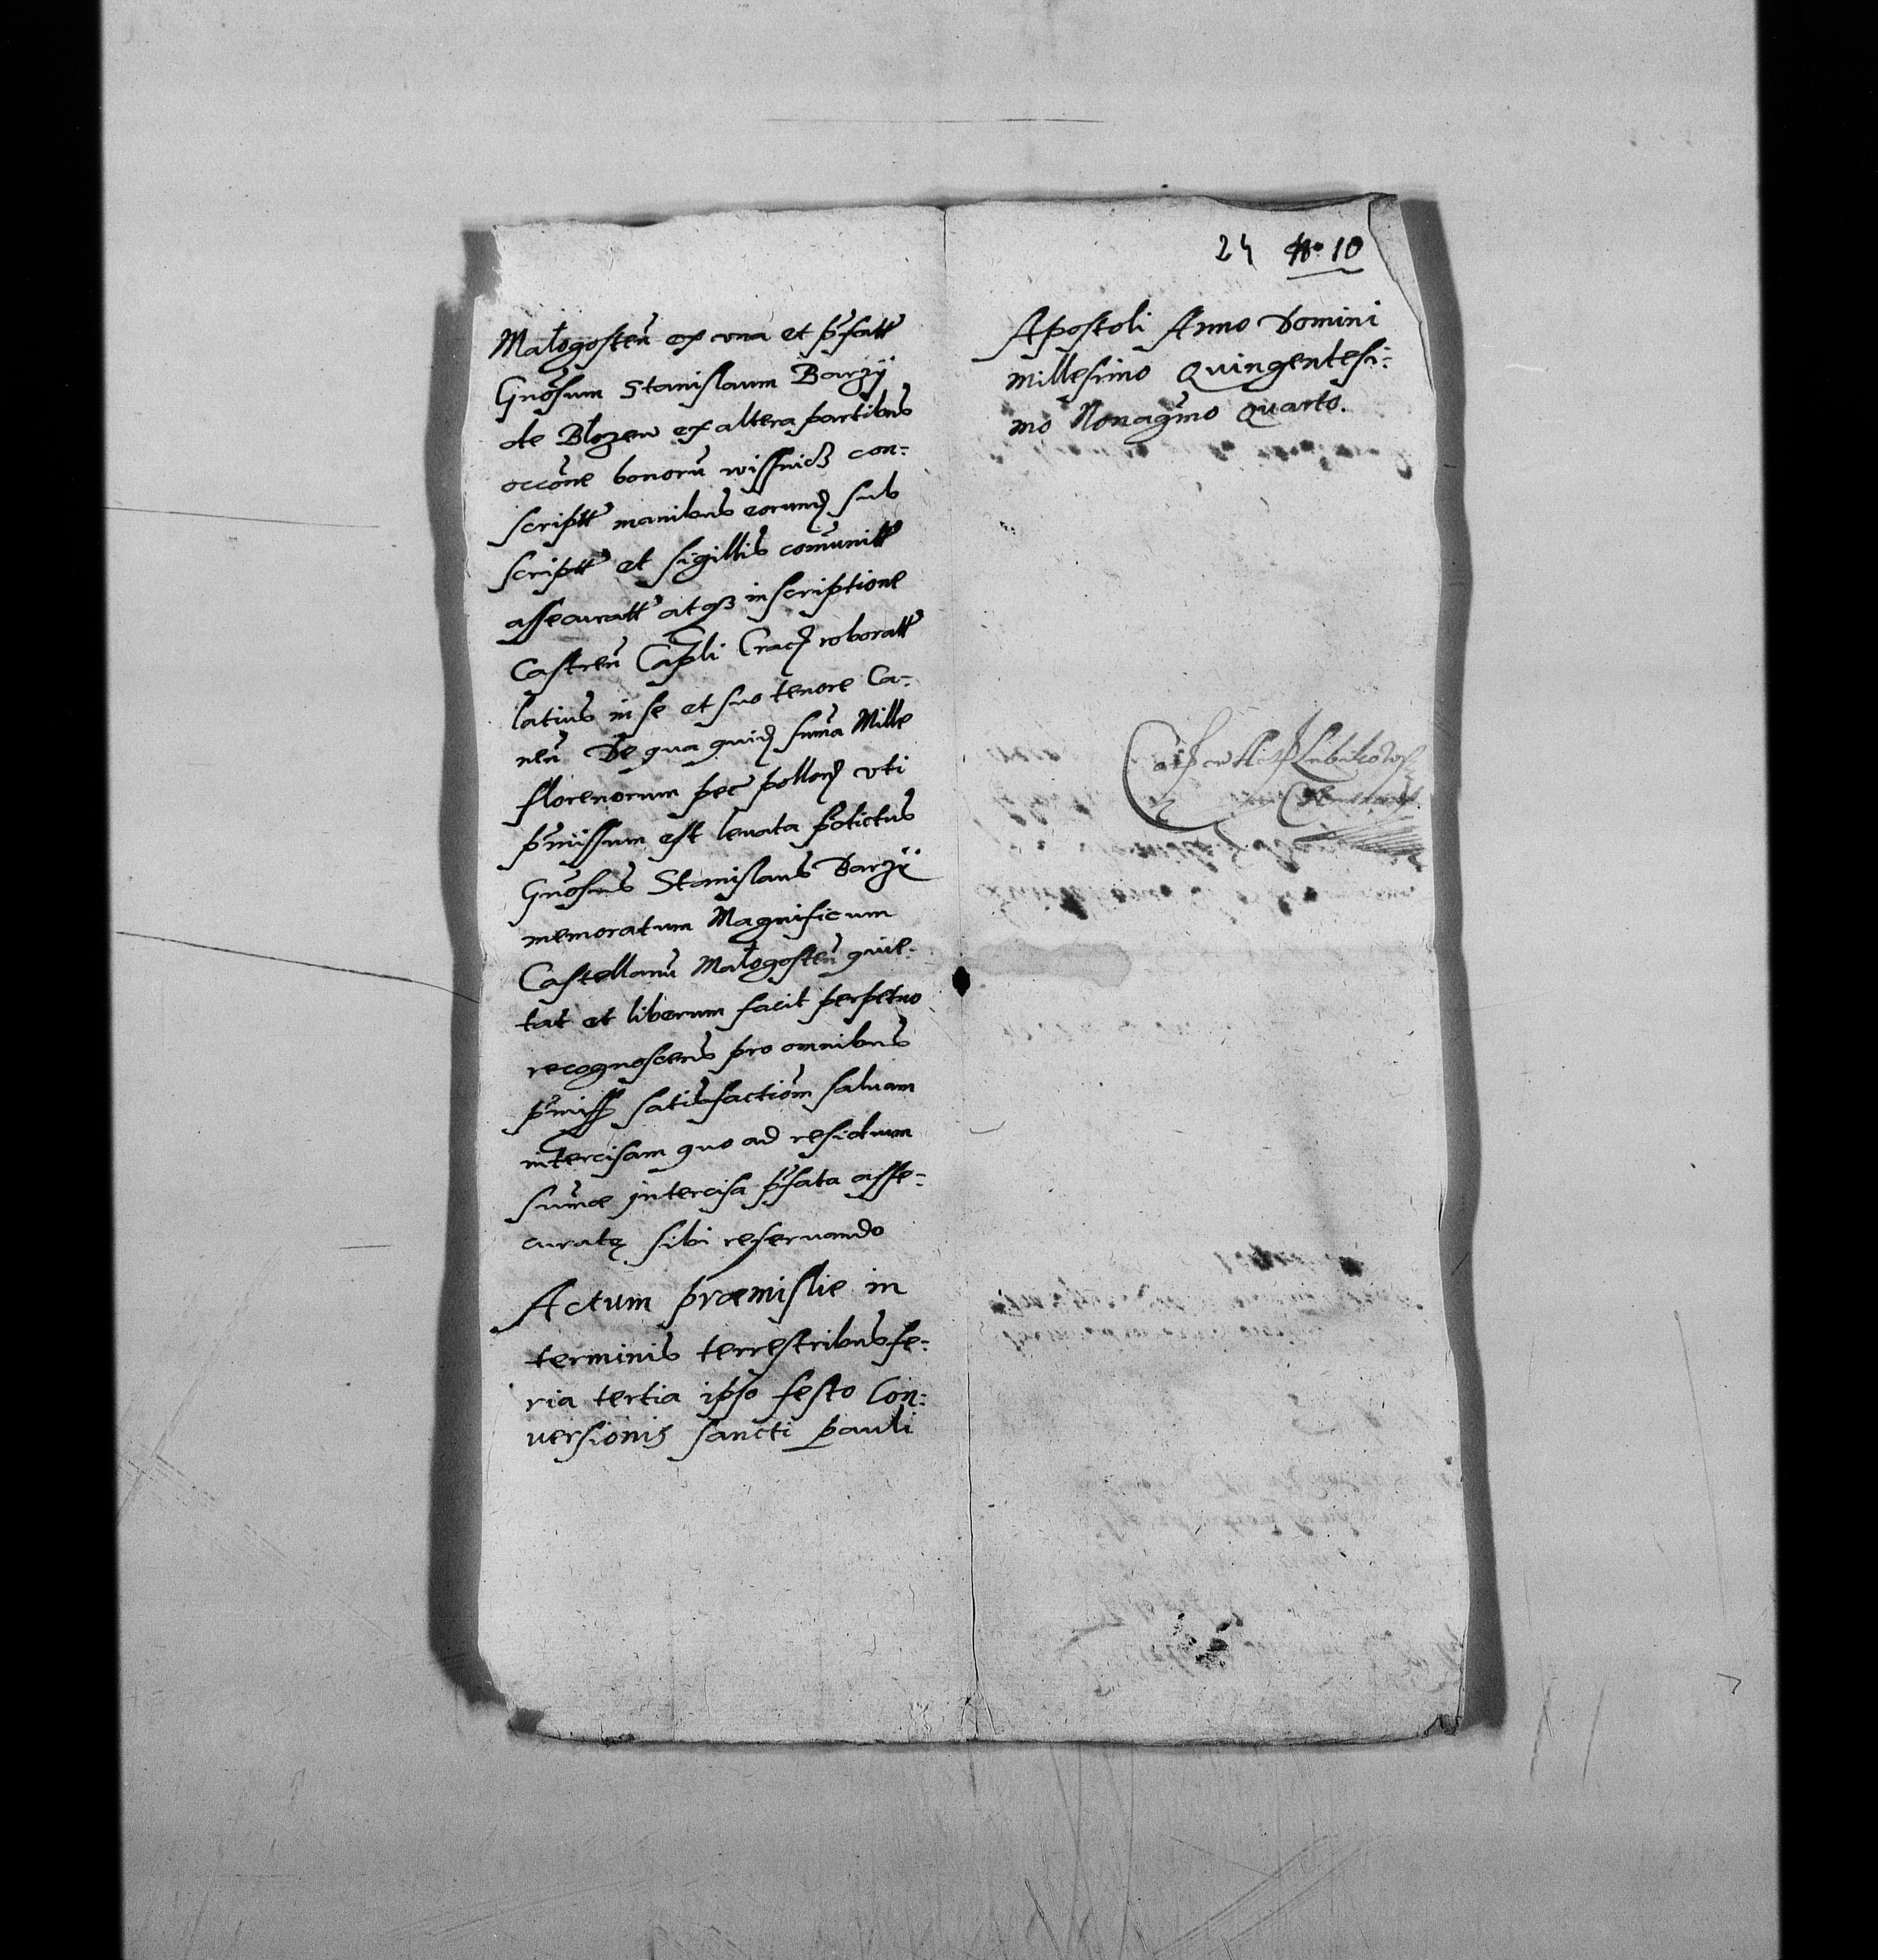 Małogosteñ ex una et p̃fatt
Gnõsum Stanislaum Barzÿ
de Błozew ex altera partibus
occõne bonorũ wissnicz con-
scriptt manibus eorund sub
scriptt et sigillis comũnitt
assecuratt atqz inscriptione
Castreñ Capli Crac roboratt
latius in se et suo tenore Ca-
neñ De qua quid sum̃a Mille
florenorum pec pollonl uti
p̃missum est leuata p̃dictus
Gnõsus Stanislaus Barzÿ
memoratum Magnificum
Castellanũ Małogosteñ quit-
tat et liberum facit perpetuo
recognoscens pro omnibus
p̃miss satisfactiõm saluam
intercisam quo ad residuum
sum̃ae intercisa p̃fata asse-
curatę sibi reseruando
Actum præmislie in
terminis terrestribus fe-
ria tertia ipso festo Con-
uersionis sancti pauli
24 No 10
Apostoli Anno Domini
millesimo Quingentesi-
mo Nonagẽmo Quarto.